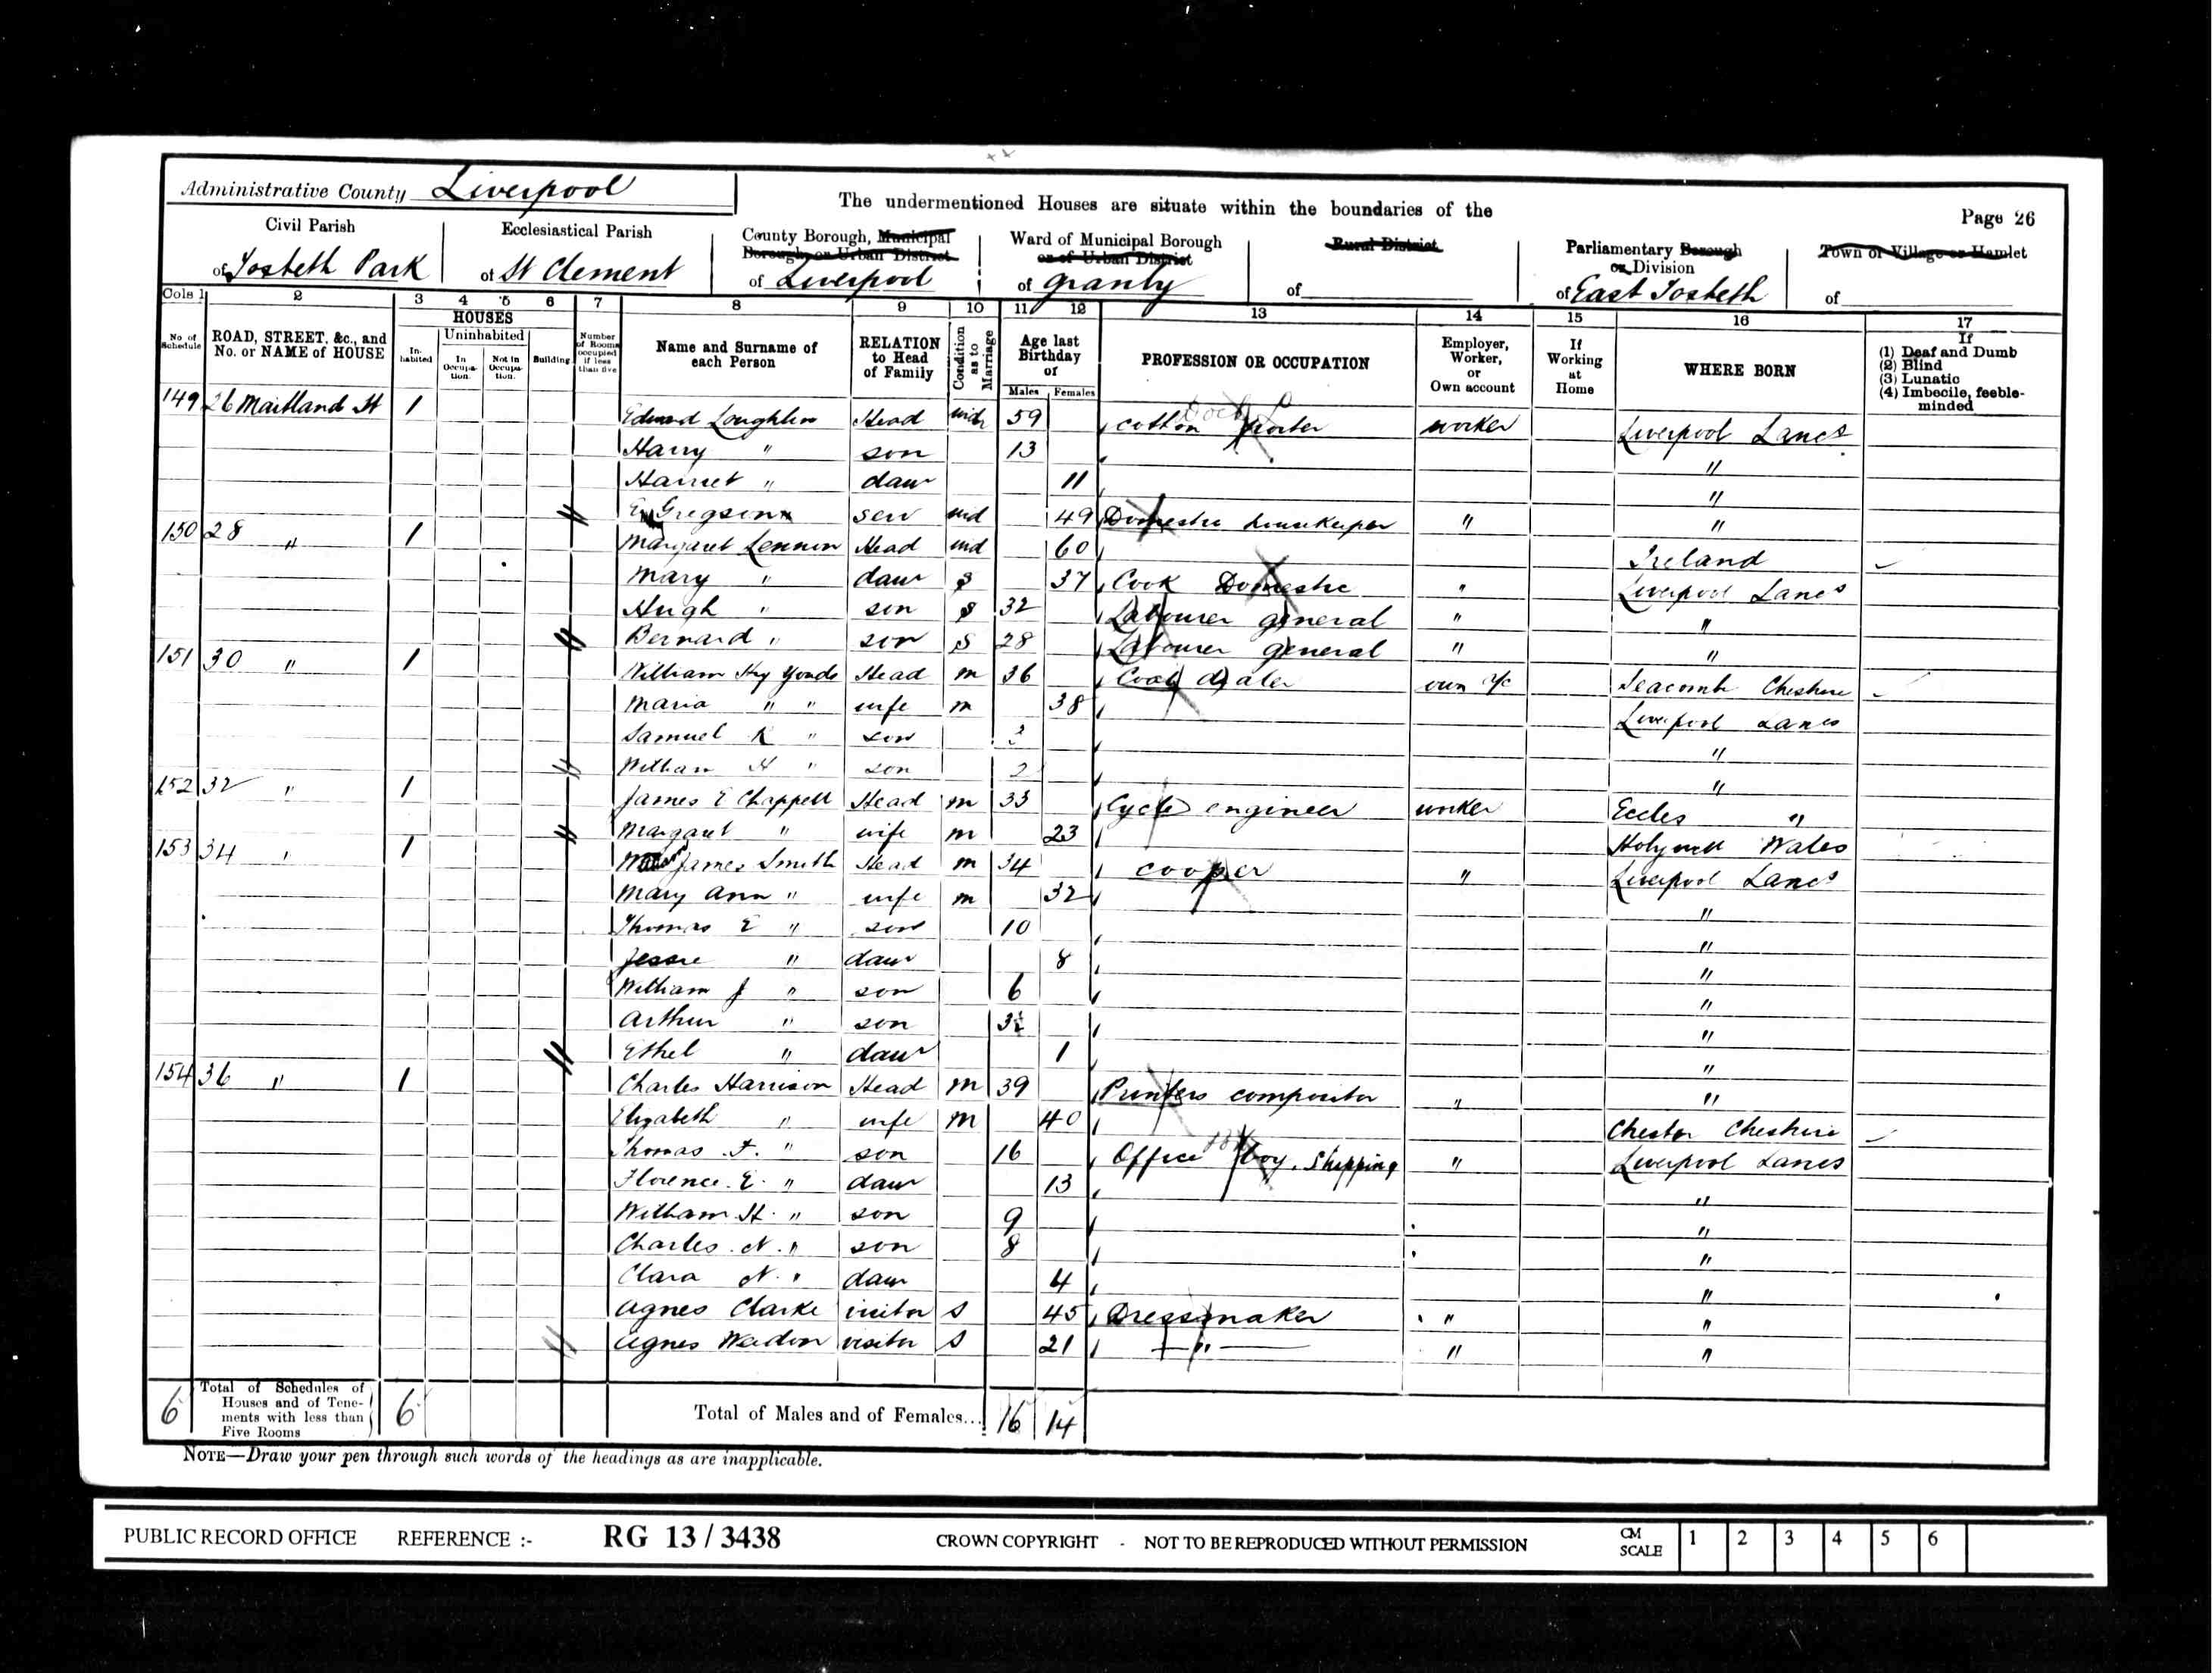 Administrative County Liverpool
The undermentioned Houses are situate within the boundaries of the
Page 26
Civil Parish of Toxteth Park
Ecclesiastical Parish of St Clement
County Borough, Municipal Borough, or Urban District of Liverpool
Ward of Municipal Borough or of Urban District of Granby
Rural District of
Parliamentary Borough or Division of East Toxteth
Town or Village or Hamlet of
Cols 1 2 3 4 5 6 7 8 9 10 11 12 13 14 15 16 17
No of Schedule
ROAD, STREET, &c., and No. or NAME of HOUSE
HOUSES
Inhabited
Uninhabited
In Occupation.
Not in Occupation.
Building.
Number of Rooms occupied if less than five
Name and Surname of each Person
RELATION to Head of Family
Condition as to Marriage
Age last Birthday of
Males Females
PROFESSION OR OCCUPATION
Employer, Worker, or Own account
If Working at Home
WHERE BORN
If
(1) Deaf and Dumb
(2) Blind
(3) Lunatic
(4) Imbecile, feeble-minded
149 26 Maitland St 1 Edward Loughlin Head wid 59 cotton porter worker Liverpool Lancs
Harry " son 13 "
Harriet " daur 11 "
Gregson serv wid 49 Domestic housekeeper " "
150 28 " 1 Margaret Lennon Head wid 60 Ireland
Mary " daur S 37 Cook Domestic " Liverpool Lancs
Hugh " son S 32 Labourer general " "
Bernard " son S 28 Labourer general " "
151 30 " 1 William Hy Head m 36 Coal dealer own a/c Seacombe Cheshire
Maria " " wife m 38 Liverpool Lancs
Samuel R " son 3 "
William H " son 2 "
152 32 " 1 James E Chappell Head m 33 Cycle engineer worker Eccles "
Margaret " wife m 23 Holywell Wales
153 34 " 1 James Smith Head m 34 cooper " Liverpool Lancs
Mary Ann " wife m 32 "
Thomas E " son 10 "
Jessie " daur 8 "
William J " son 6 "
Arthur " son "
Ethel " daur 1 "
154 36 " 1 Charles Harrison Head M 39 Printers compositor " "
Elizabeth " wife M 40 Chester Cheshire
Thomas F. " son 16 Office boy. Shipping " Liverpool Lancs
Florence. E. " daur 13 "
William H. " son 9 "
Charles. N. " son 8 "
Clara N. " daur 4 "
Agnes Clarke visitor S 45 Dressmaker " "
Agnes visitor S 21 " " "
6 Total of Schedules of Houses and of Tenements with less than Five Rooms 6 Total of Males and of Females... 16 14
NOTE—Draw your pen through such words of the headings as are inapplicable.
PUBLIC RECORD OFFICE REFERENCE :- RG 13 / 3438 CROWN COPYRIGHT - NOT TO BE REPRODUCED WITHOUT PERMISSION CM SCALE 1 2 3 4 5 6